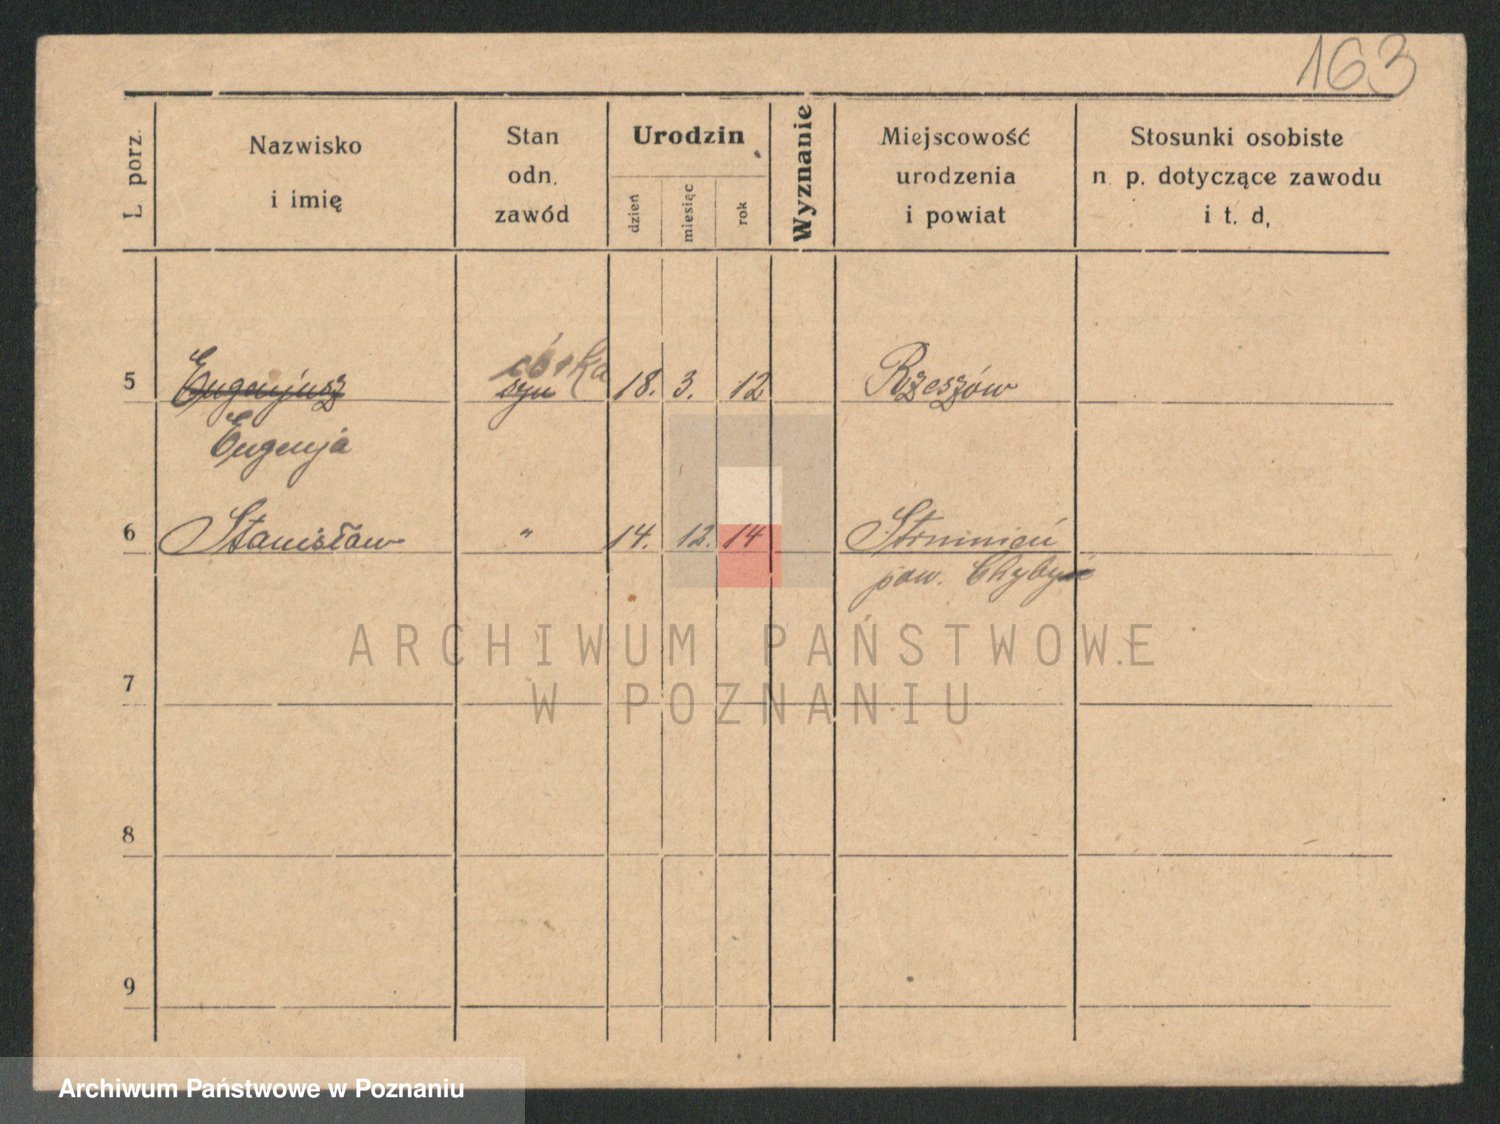 163
L. porz.
Nazwisko
i imię
Stan
odn.
zawód
Urodzin
dzień
miesiąc
rok
Wyznanie
Miejscowość
urodzenia
i powiat
Stosunki osobiste
n. p. dotyczące zawodu
i t. d,
5 Eugenjusz syn córka 18. 3. 12 Rzeszów
Eugenja
6 Stanisław " 14. 12. 14
pow.
ARCHIWUM PAŃSTWOWE
W POZNANIU
7
8
9
Archiwum Państwowe w Poznaniu